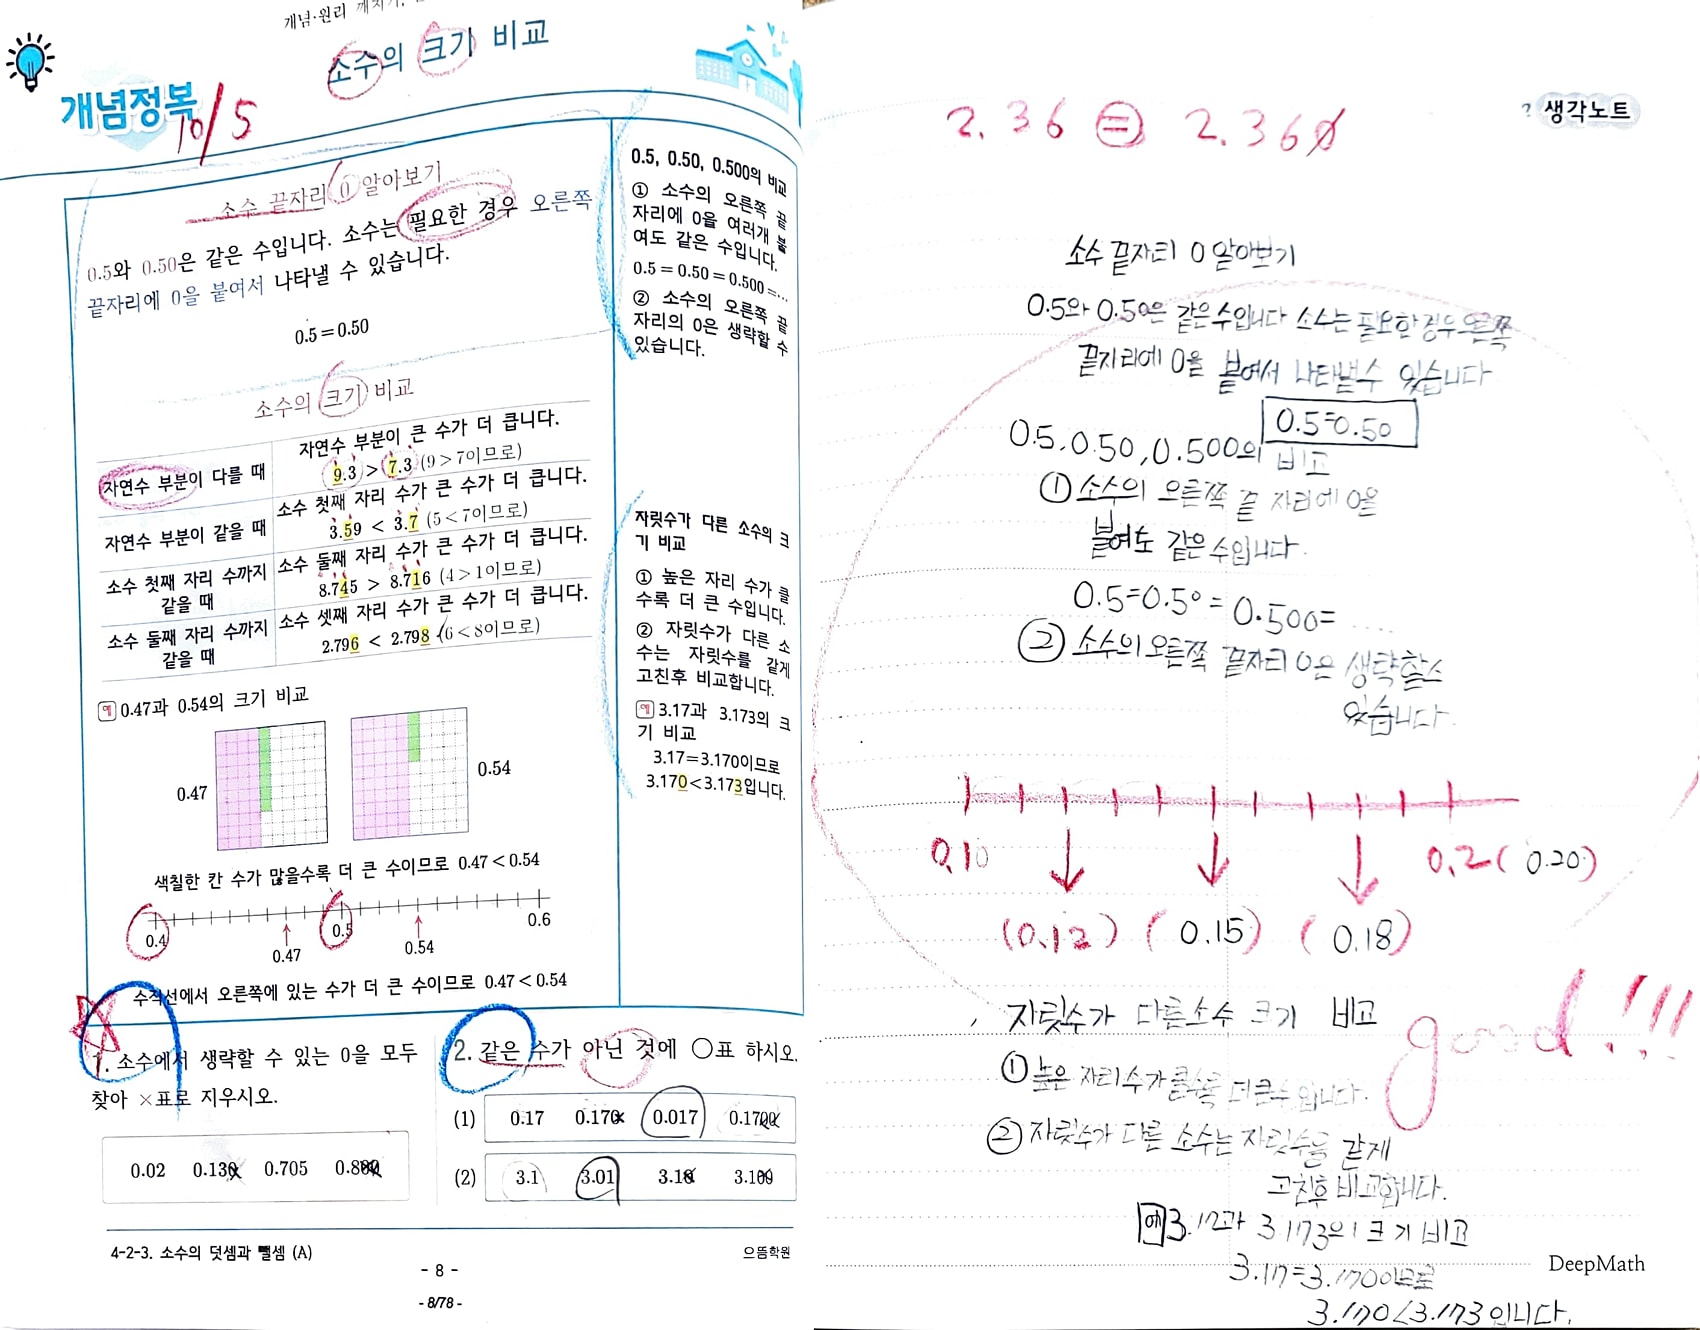 개념·원리 깨치기,
소수의 크기 비교
개념정복
10/5
소수 끝자리 0 알아보기
0.5와 0.50은 같은 수입니다. 소수는 필요한 경우 오른쪽
끝자리에 0을 붙여서 나타낼 수 있습니다.
0.5=0.50
소수의 크기 비교
자연수 부분이 다를 때
자연수 부분이 큰 수가 더 큽니다.
9.3 > 7.3 (9>7이므로)
자연수 부분이 같을 때
소수 첫째 자리 수가 큰 수가 더 큽니다.
3.59 < 3.7 (5<7이므로)
소수 첫째 자리 수까지
같을 때
소수 둘째 자리 수가 큰 수가 더 큽니다.
8.745 > 8.716 (4>1이므로)
소수 둘째 자리 수까지
같을 때
소수 셋째 자리 수가 큰 수가 더 큽니다.
2.796 < 2.798 (6<8이므로)
예 0.47과 0.54의 크기 비교
0.47
0.54
색칠한 칸 수가 많을수록 더 큰 수이므로 0.47<0.54
0.4 0.5 0.6
0.47 0.54
수직선에서 오른쪽에 있는 수가 더 큰 수이므로 0.47<0.54
0.5, 0.50, 0.500의 비교
① 소수의 오른쪽 끝
자리에 0을 여러개 붙
여도 같은 수입니다.
0.5=0.50=0.500=···
② 소수의 오른쪽 끝
자리의 0은 생략할 수
있습니다.
자릿수가 다른 소수의 크
기 비교
① 높은 자리 수가 클
수록 더 큰 수입니다.
② 자릿수가 다른 소
수는 자릿수를 같게
고친후 비교합니다.
예 3.17과 3.173의 크
기 비교
3.17=3.170이므로
3.170<3.173입니다.
1. 소수에서 생략할 수 있는 0을 모두
찾아 ×표로 지우시오.
0.02 0.130 0.705 0.880
2. 같은 수가 아닌 것에 ○표 하시오.
(1) 0.17 0.170 0.017 0.1700
(2) 3.1 3.01 3.10 3.100
4-2-3. 소수의 덧셈과 뺄셈 (A)
으뜸학원
- 8 -
- 8/78 -
2.36 = 2.360
? 생각노트
소수 끝자리 0 알아보기
0.5와 0.50은 같은수입니다 소수는 필요한경우오른쪽
끝자리에 0을 붙여서 나타낼수 있습니다
0.5=0.50
0.5, 0.50, 0.500의 비교
① 소수의 오른쪽 끝 자리에 0을
붙여도 같은수입니다.
0.5=0.50=0.500=....
② 소수의오른쪽 끝자리 0은 생략할수
있습니다.
0.10 0.2( 0.20 )
(0.12) (0.15) (0.18)
자릿수가 다른소수 크기 비교
① 높은 자리수가클수록 더큰수입니다.
② 자릿수가 다른 소수는 자릿수를 같게
고친후 비교합니다.
예 3.17과 3.173의 크기 비교
3.17=3.170이므로
3.170<3.173입니다.
good!!!
DeepMath